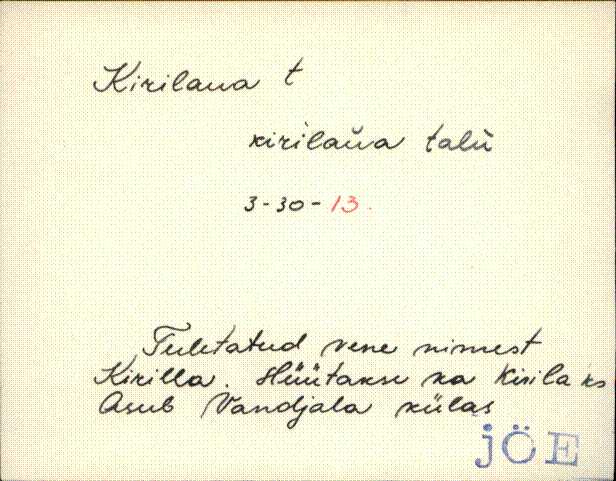 Kirilaua t
kirilaùa talù
3-30-13.
Tuletatud vene nimest
Kirilla. Hüütakse ka Kirilaks
Asub Vandjala külas
jÖE